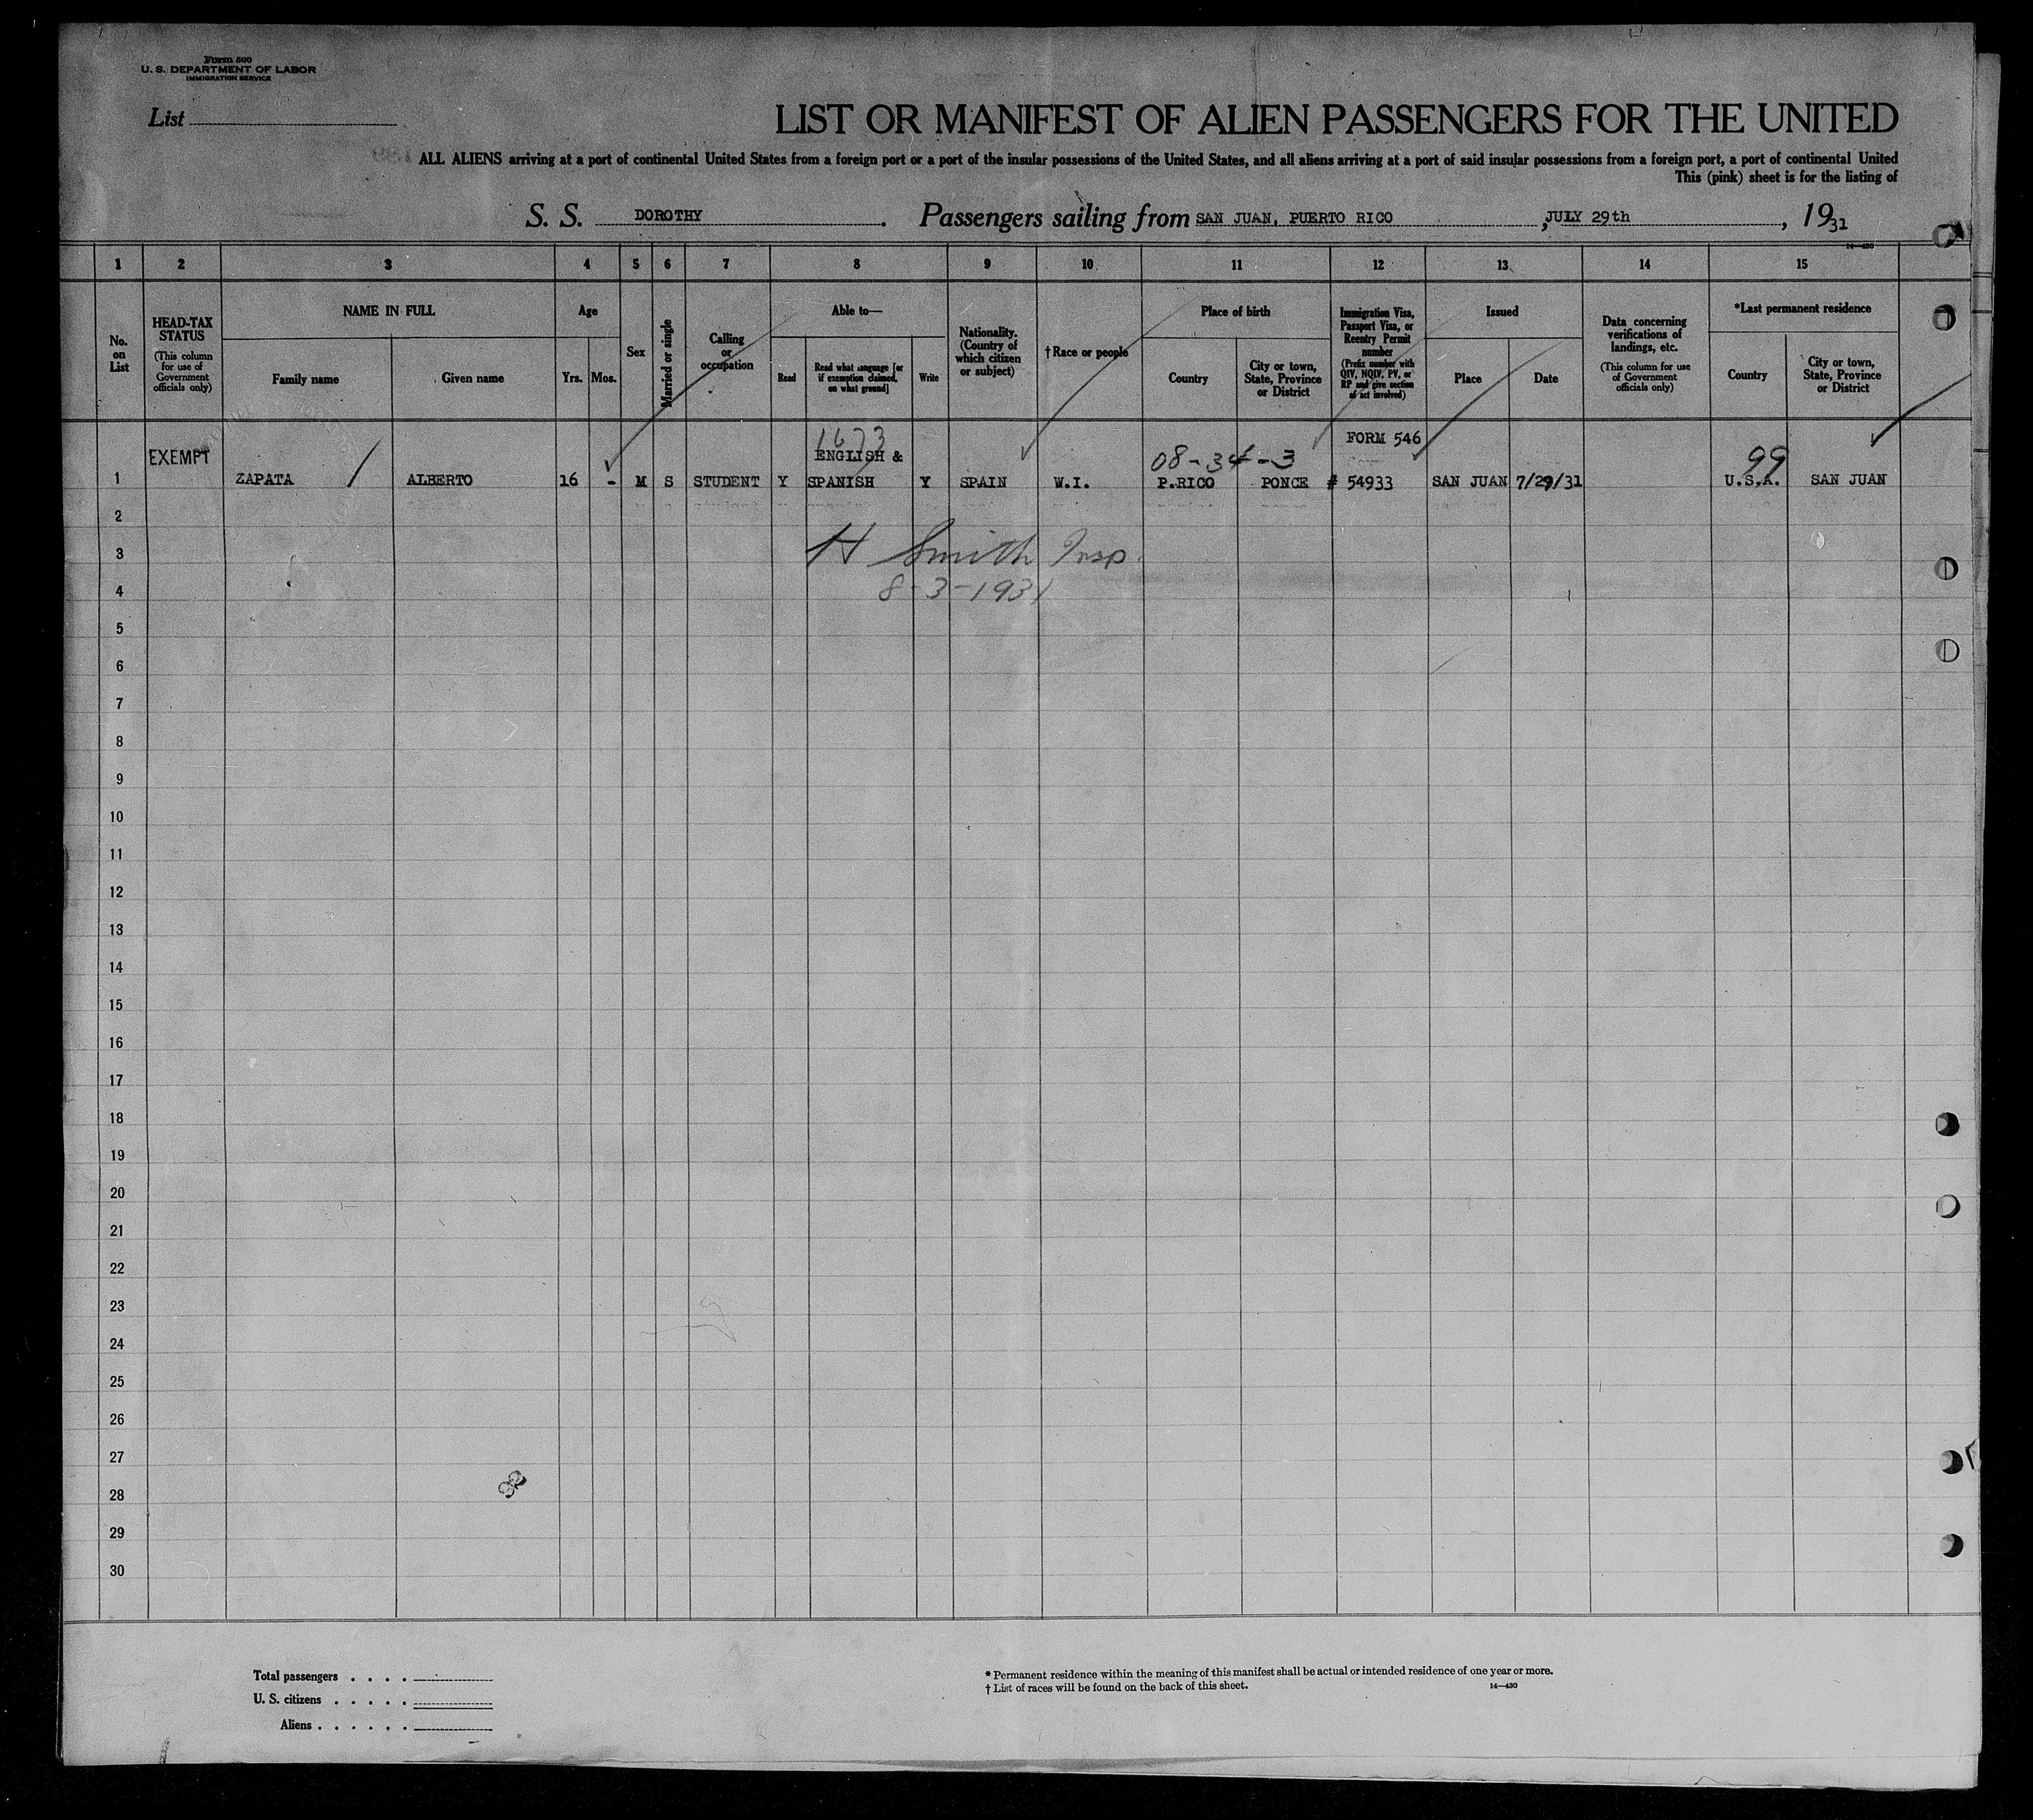 Form 500
U. S. DEPARTMENT OF LABOR
IMMIGRATION SERVICE
List
LIST OR MANIFEST OF ALIEN PASSENGERS FOR THE UNITED
ALL ALIENS arriving at a port of continental United States from a foreign port or a port of the insular possessions of the United States, and all aliens arriving at a port of said insular possessions from a foreign port, a port of continental United
This (pink) sheet is for the listing of
S. S. DOROTHY. Passengers sailing from SAN JUAN, PUERTO RICO, JULY 29th, 1931
14—430
1 2 3 4 5 6 7 8 9 10 11 12 13 14 15
No. on List
HEAD-TAX STATUS
(This column for use of Government officials only)
NAME IN FULL
Family name
Given name
Age
Yrs. Mos.
Sex
Married or single
Calling or occupation
Able to—
Read
Read what language [or if exemption claimed, on what ground]
Write
Nationality. (Country of which citizen or subject)
†Race or people
Place of birth
Country
City or town, State, Province or District
Immigration Visa, Passport Visa, or Reentry Permit number
(Prefix number with QIV, NQIV, PV, or RP and give section of act involved)
Issued
Place
Date
Data concerning verifications of landings, etc.
(This column for use of Government officials only)
*Last permanent residence
Country
City or town, State, Province or District
1673
FORM 546
EXEMPT ENGLISH & 08-34-3 99
1 ZAPATA ALBERTO 16 - M S STUDENT Y SPANISH Y SPAIN W.I. P.RICO PONCE # 54933 SAN JUAN 7/29/31 U.S.A. SAN JUAN
2
3 H Smith Insp.
4 8-3-1931
5
6
7
8
9
10
11
12
13
14
15
16
17
18
19
20
21
22
23
24
25
26
27
28
29
30
Total passengers . . . .
U. S. citizens . . . . .
Aliens . . . . . .
* Permanent residence within the meaning of this manifest shall be actual or intended residence of one year or more.
† List of races will be found on the back of this sheet.
14—430